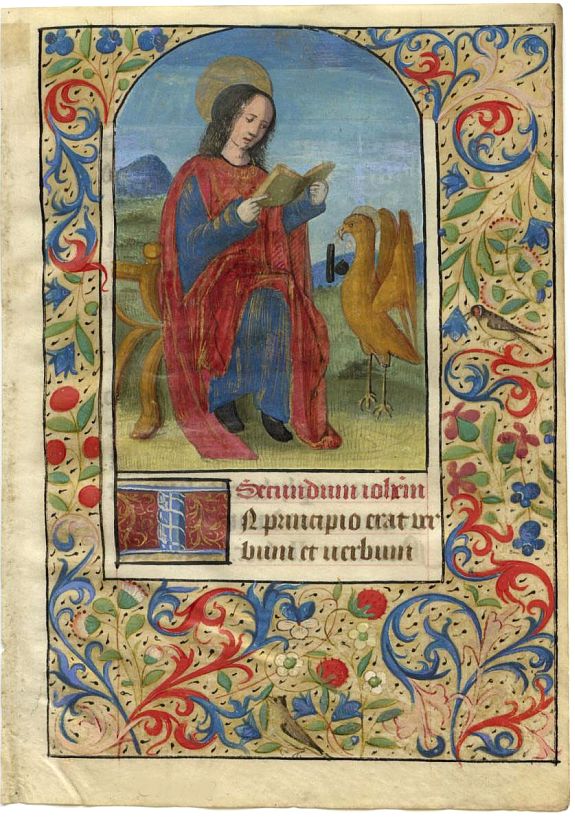 Secundum ioh̅em
IN principio erat ver
bum et uerbum